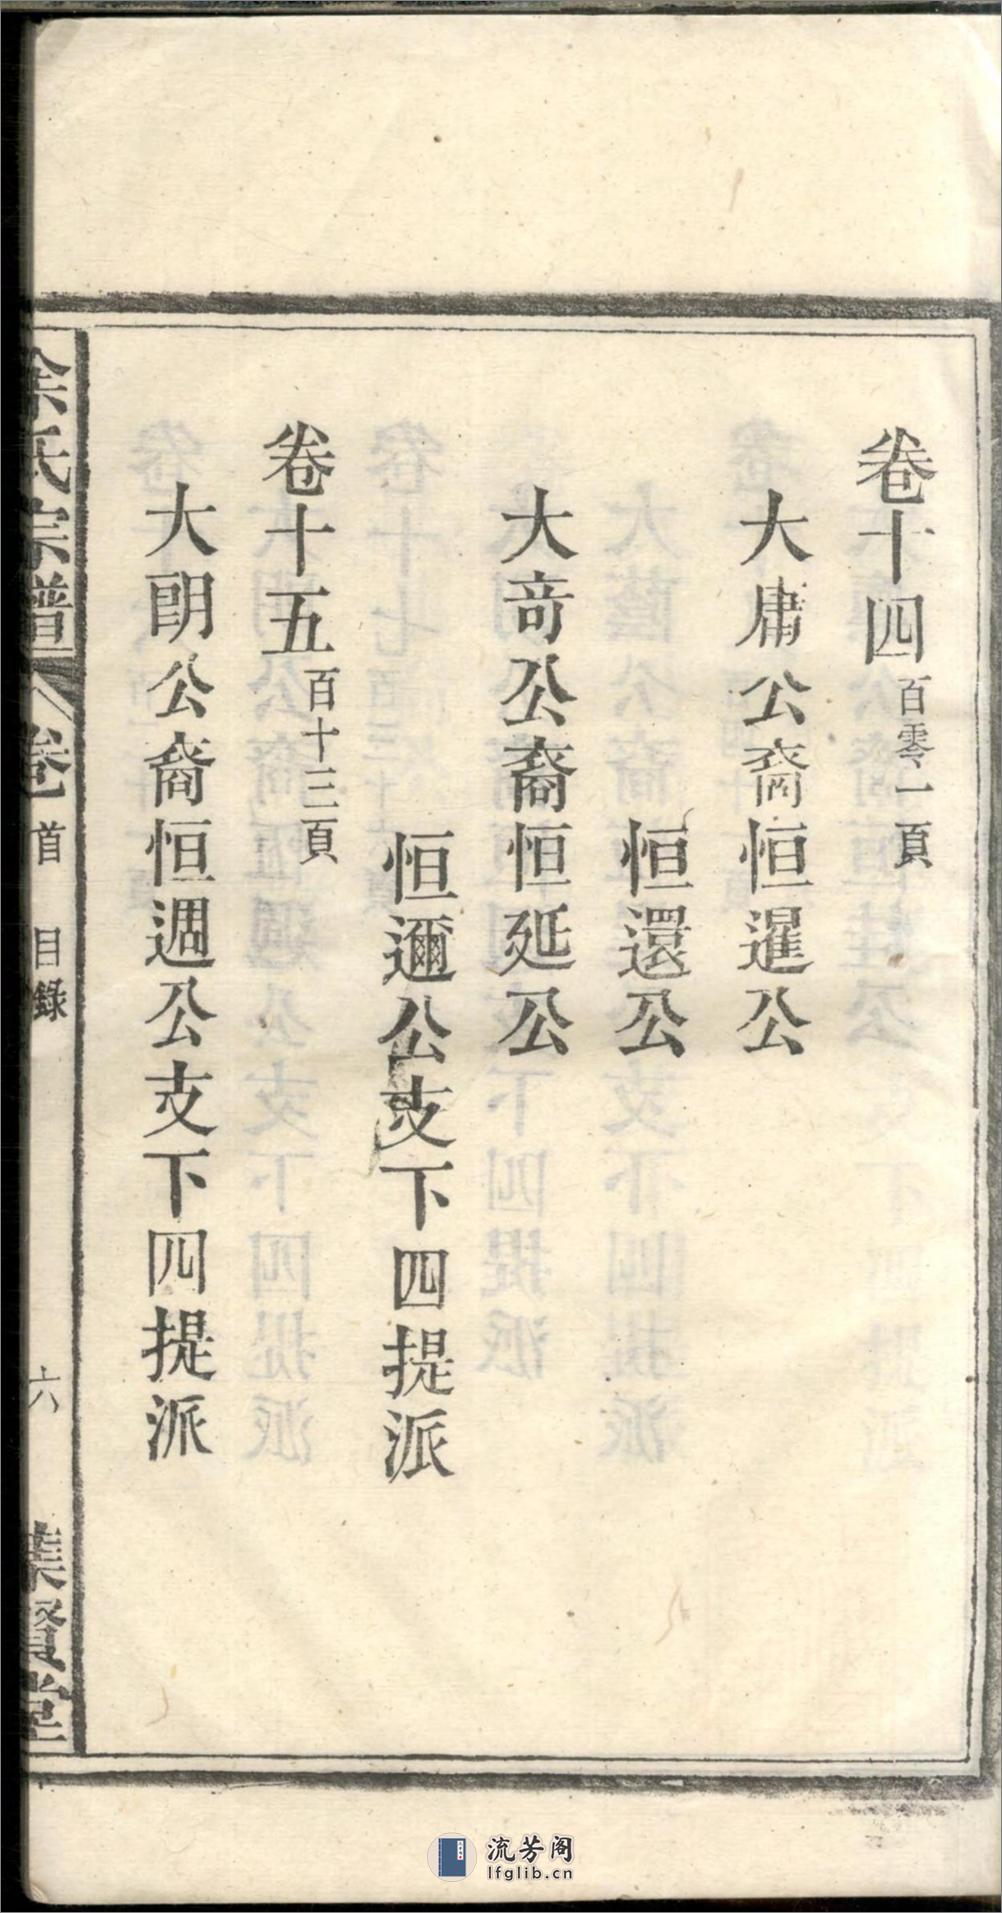 卷十四百零一頁
大庸公裔恒暹公
恒還公
大奇公裔恒延公
恒邇公支下四提派
卷十五百十三頁
大朗公裔恒週公支下四提派
氏宗譜 卷首 目錄 六 集賢堂
流芳阁
lfglib.cn